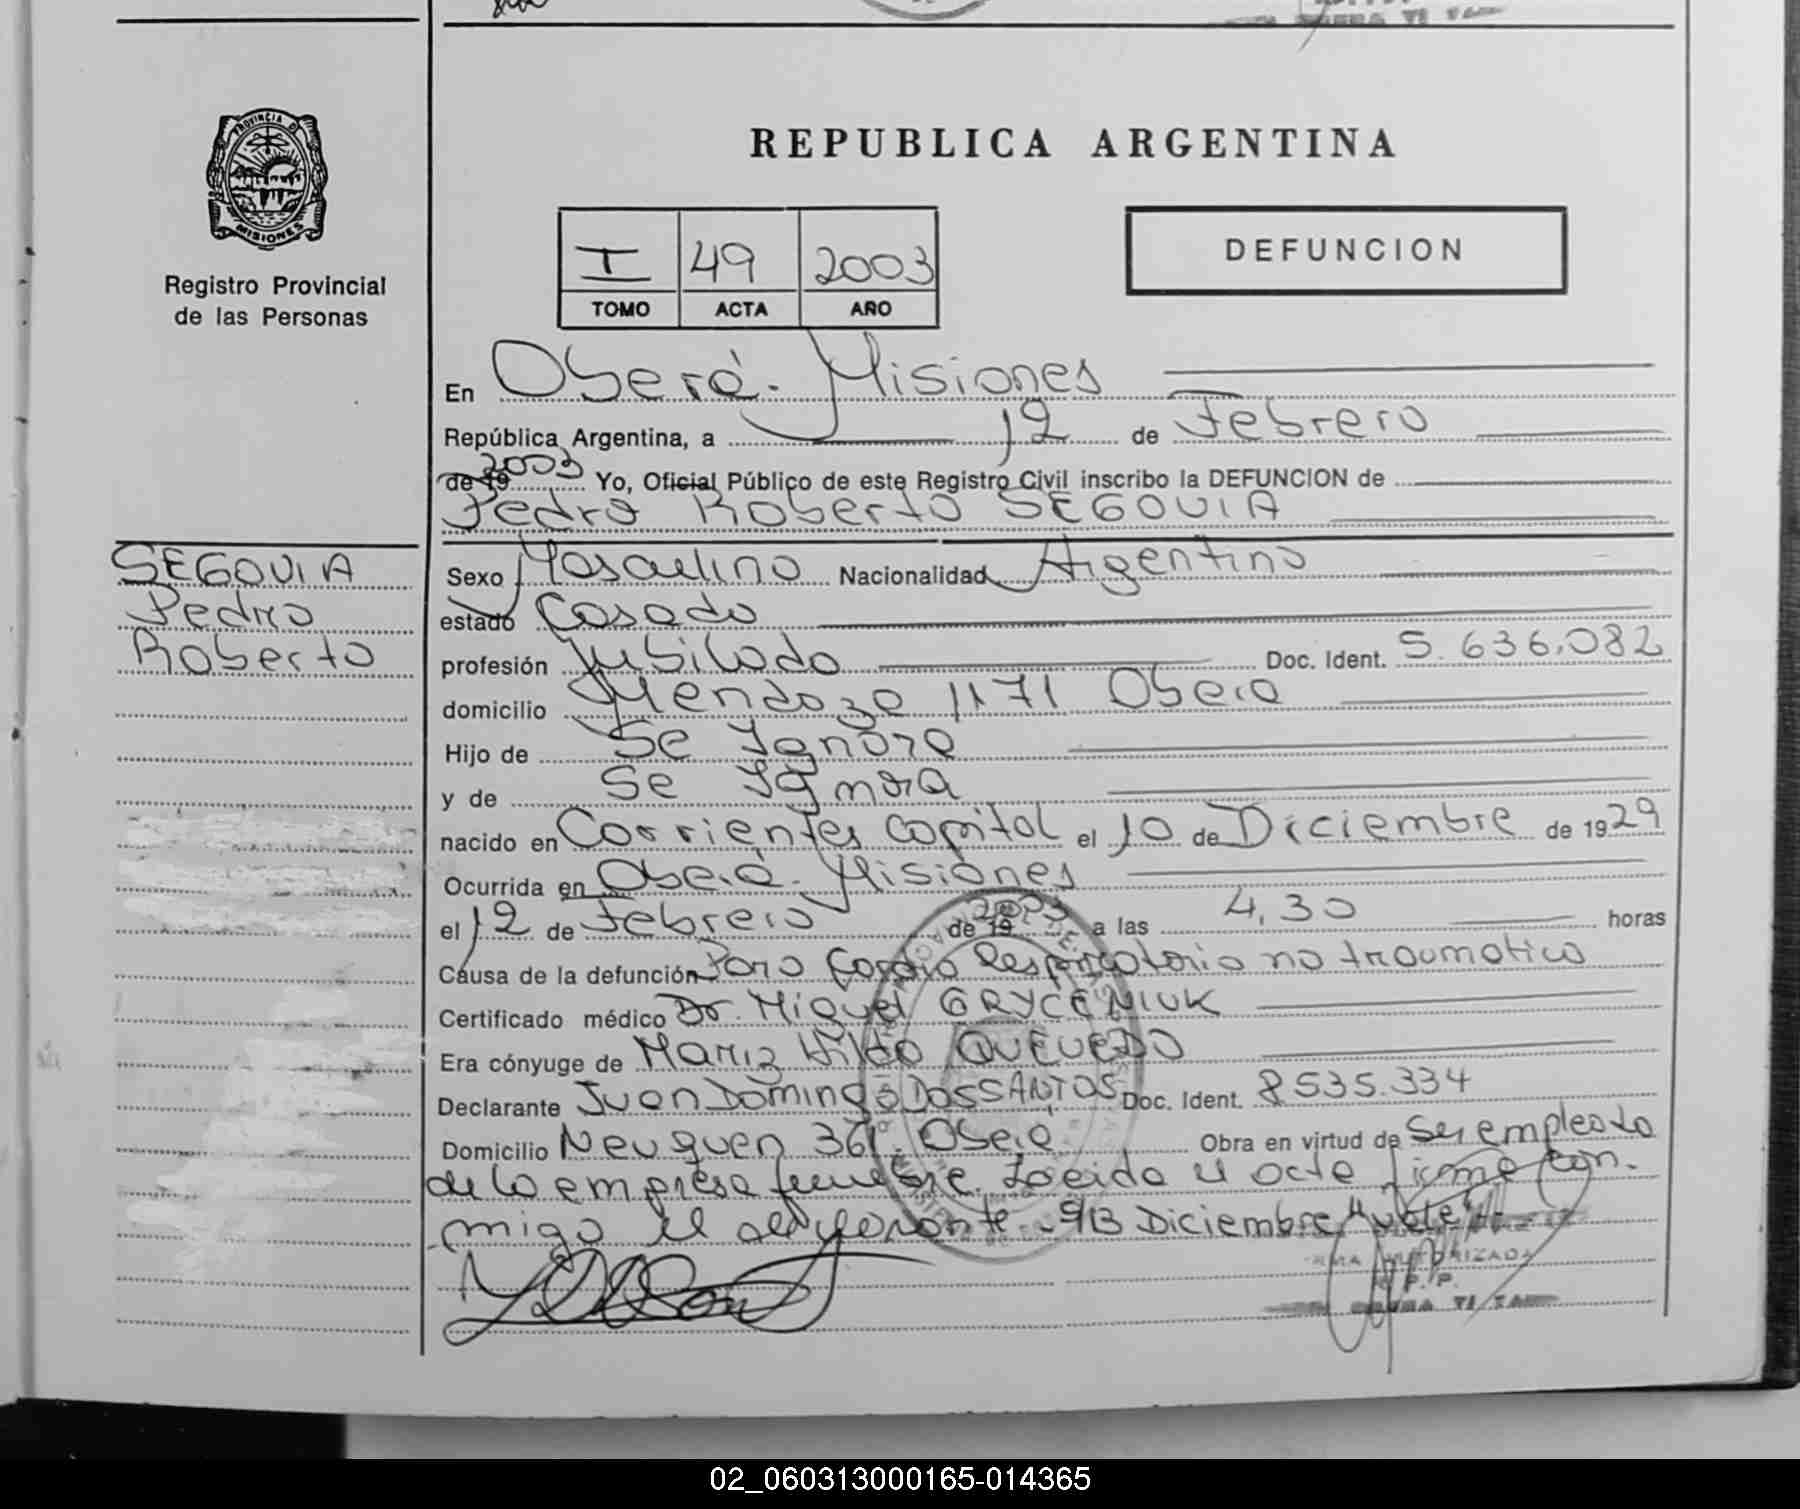 PROVINCIA DE
MISIONES
Registro Provincial
de las Personas
REPUBLICA ARGENTINA
I 49 2003
TOMO ACTA AÑO
DEFUNCION
En Oberá - Misiones
República Argentina, a 12 de Febrero
de 19 2003 Yo, Oficial Público de este Registro Civil inscribo la DEFUNCION de
Pedro Roberto SEGOVIA
SEGOVIA
Pedro
Roberto
Sexo Masculino Nacionalidad Argentino
estado Casado
profesión Jubilado Doc. Ident. 5.636.082
domicilio Mendoza 1171 Oberá
Hijo de Se Ignora
y de Se Ignora
nacido en Corrientes Capital el 10 de Diciembre de 1929
Ocurrida en Oberá - Misiones
el 12 de Febrero de 19 2003 a las 4,30 horas
Causa de la defunción Paro Cardio Respiratorio no traumatico
Certificado médico Dr. Miguel GRYCENIUK
Era cónyuge de Maria Hilda QUEVEDO
Declarante Juan Domingo DOSSANTOS Doc. Ident. 8535.334
Domicilio Neuquen 361 Oberá Obra en virtud de Ser empleado
de la empresa funebre. Leida el acta firma con-
migo el declarante - 9/13 Diciembre "vale"-
FIRMA AUTORIZADA
R. P. P.
02_060313000165-014365